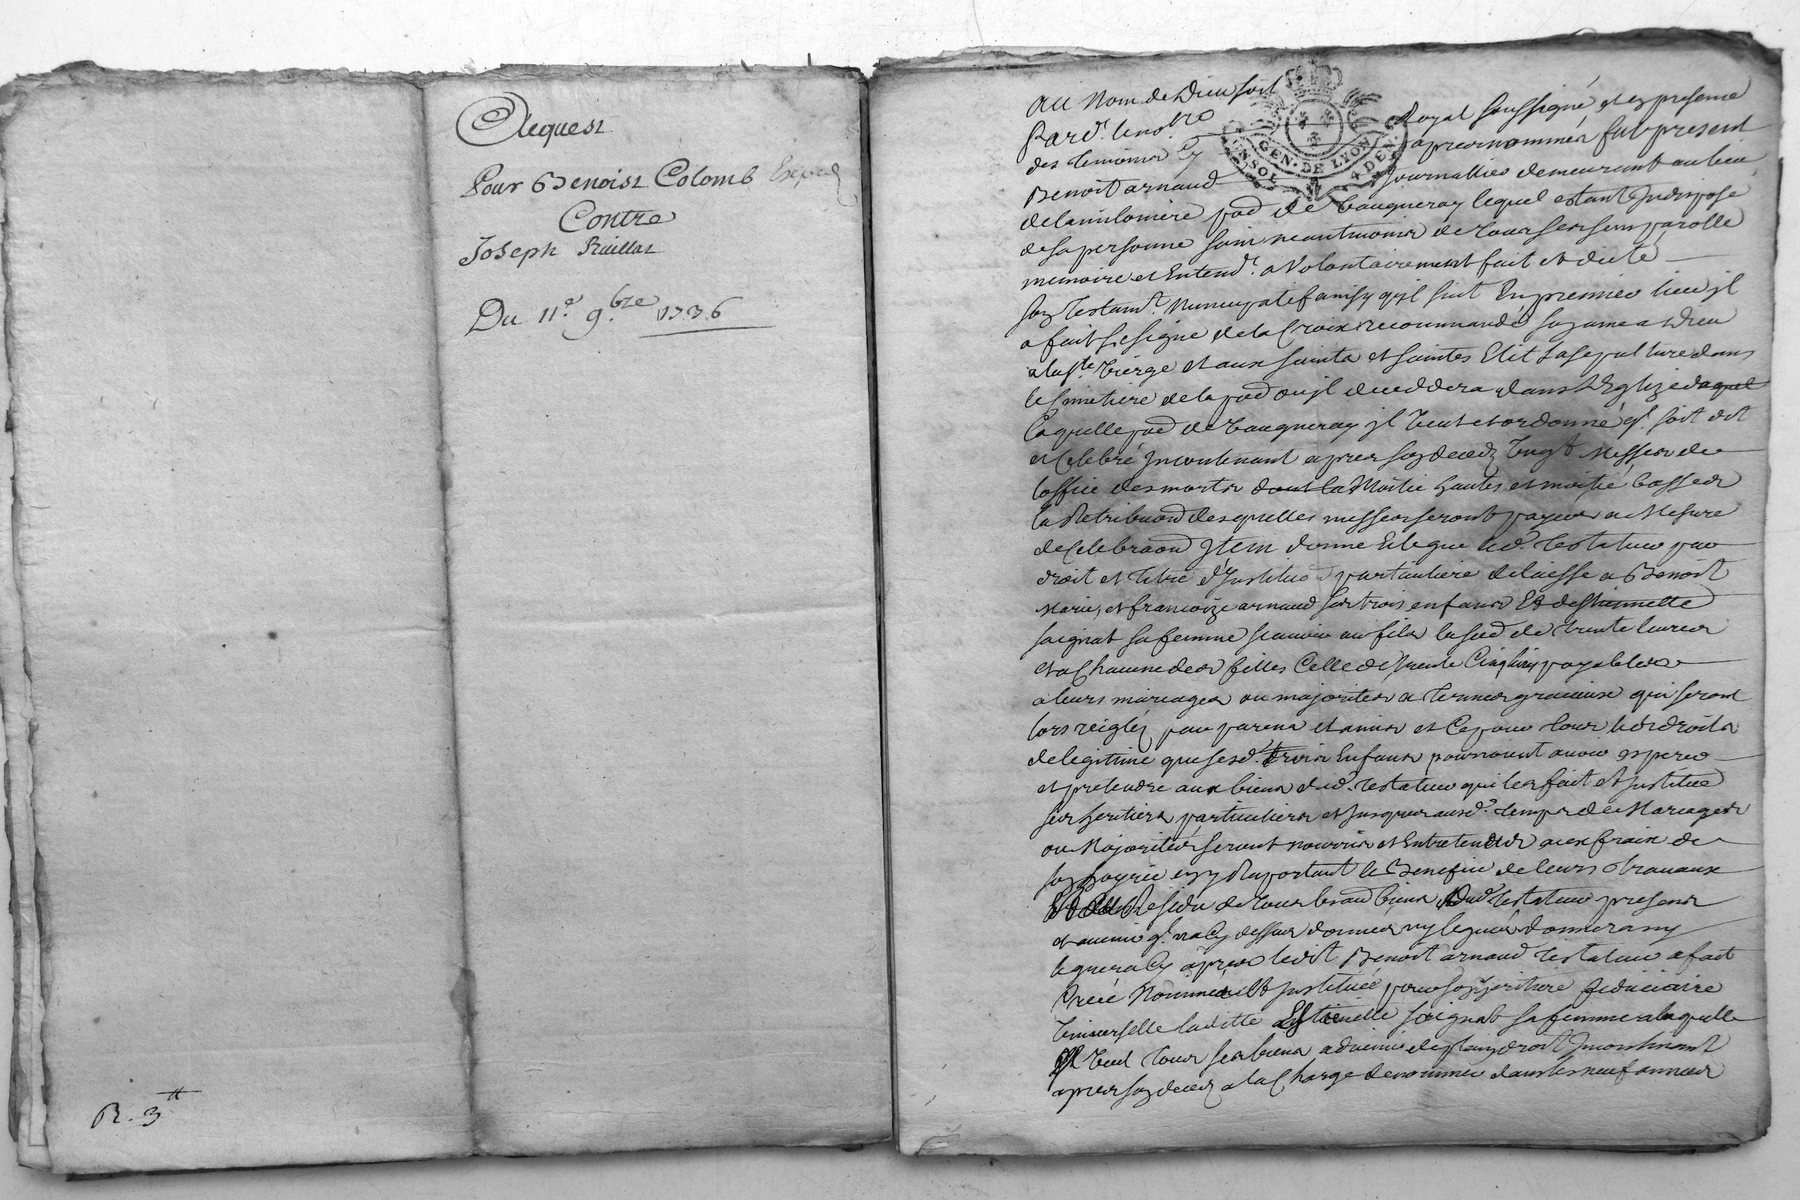 Acquest
Pour Benoist Colomb Exped
Contre
Joseph Ruillat
Du 11e 9bre 1736
R. 3tt
GEN. DE LYON
4 DEN.
Au Nom de Dieu soit
Pard.t le not.re Royal soussigné et en presence
des temoins cy apres nommés fut present
Benoit arnaud journallier demeurant au lieu
de la milonière par de Vaugneray lequel estant Indisposé
de sa personne sain neantmoins de tous ses sens parolle
memoire et Entend.t a Volontairement fait et dicté
son testam.t Nuncupatif ainsy qu'jl suit En premier lieu jl
a fait le signe de la Croix recommandé son ame a Dieu
a la Ste Vierge et aux saints et saintes Elit sa sepulture dans
le simetiere de la par ou jl deceddera dans L'Eglize daquel
laquelle par de Vaugneray jl Veut et ordonne q.l soit dit
et Celebré Incontinant apres son deced Vingt Messes de
l'office des morts dont la Moitié hautes et moitié basses
la Retribuaon desquelles messes seront payées a Mesure
de Celebraon Jtem donne et legue led. testateur par
droit et titre d'Institution particuliere delaisse a Benoit
Marie, et françoize arnaud ses trois enfans Et de Etiennette
soignat sa femme scavoir au fils la som de trente livres
et a Chacune des filles Celle de trente Cinq livres payables
a leurs mariages ou majorités a termes gracieux qui seront
lors reiglés par parens et amis et Ce pour tous les droits
de legitime que sesd. trois Enfans pourroient avoir esperer
et pretendre aux biens dud. testateur qui les fait et Institue
ses heritiers particuliers et jusques ausd. temps de Mariages
ou Majorités seront nourris et Entretenus aux frais de
son hoyrie en y Raportant le Benefice de leurs travaux
Residu de tous les autres biens Dud. testateur presens
et avenir q.l n'a Cy dessus donnés ny legués donnera ny
leguera Cy apres ledit Benoit arnaud testateur a fait
Créé Nommé et Institué pour son heritiere fidiciaire
Universelle laditte Etiennette soignat sa femme a laquelle
jl Veut tous ses biens advenir de plain droit Incontinant
apres son deced a la Charge de nommer dans les neuf années